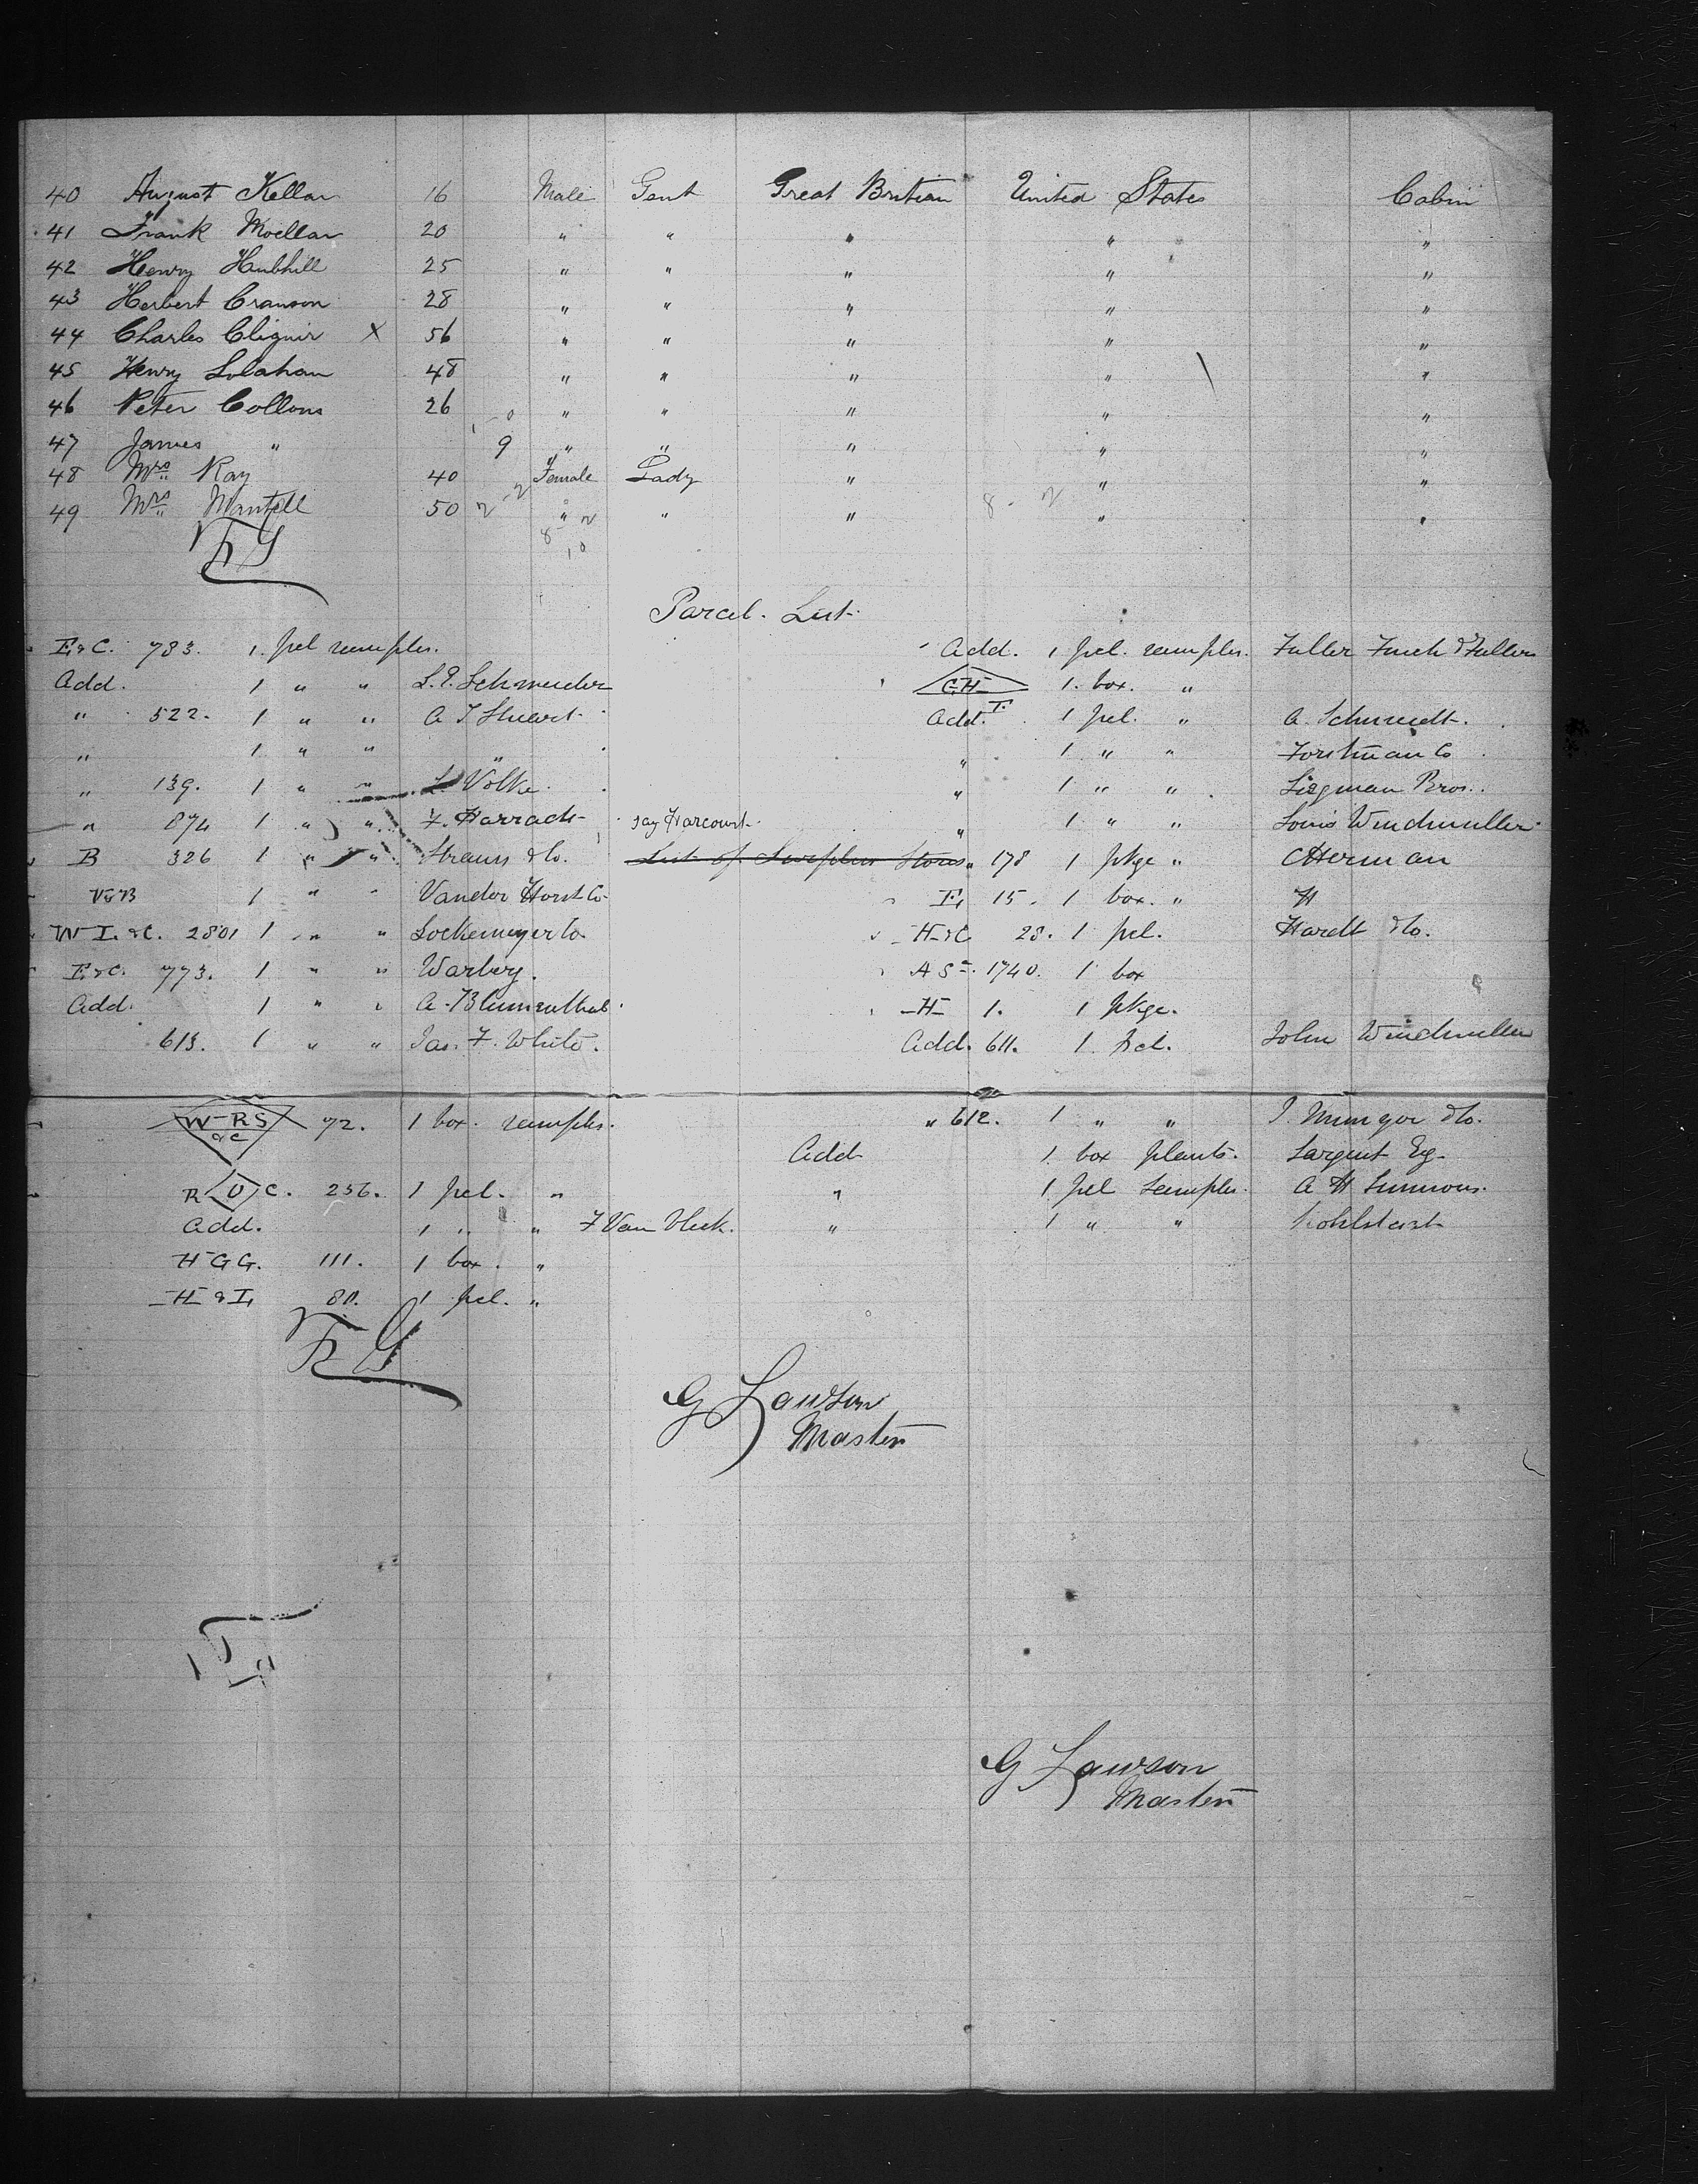 40 August Kellar 16 Male Gent Great Britian United States Cabin
41 Frank Moellar 20 " " " " "
42 Henry Hubhill 25 " " " " "
43 Herbert Cranson 28 " " " " "
44 Charles Clignir X 56 " " " " "
45 Henry Lolahan 48 " " " " "
46 Peter Collons 26 " " " " "
47 James " 9 " " " " "
48 Mrs Kay 40 Female Lady " " "
49 Mrs Mantell 50 " " " " "
Parcel List
E & C. 783. 1 pcl samples. Add. 1 pcl. samples. Fuller Finch & Fuller
Add. 1 " " L. E. Schneider GH 1. box. "
" 522. 1 " " A T Stuart Add. 1 pcl. " A. Schmidt.
" 1 " " " " 1 " " Forstman Co
" 139. 1 " " L Völke. " 1 " " Liegman Bros.
" 874 1 " " F. Harrach say Harcourt. " 1 " " Louis Windmuller
B 326 1 " " Strauss & Co. List of Surplus Stores " 178 1 pkge " C Herman
V & B 1 " " Vander Horst Co E, 15. 1 box. " H
W I. & C. 2801 1 " " Lockemeyer Co. H & C 28. 1 pcl. Hardt & Co.
E & C. 773. 1 " " Warberg. A S 1740. 1 box
Add. 1 " " A. Blumenthal. H 1. 1 pkge.
613. 1 " " Jas. F. White. Add. 611. 1 pcl. John Windmuller
W-RS & C 72. 1 box. samples. " 612. 1 " " J. Munger & Co.
Add 1. box plants. Sargent Eq
R U C. 256. 1 pcl. " " 1 pcl samples. A H Simmons.
Add. 1 " " F Van Vleck. " 1 " " Kohlstast
H G G. 111. 1 box. "
H & I, 80. 1 pcl. "
G Lawson
Master
G Lawson
Master